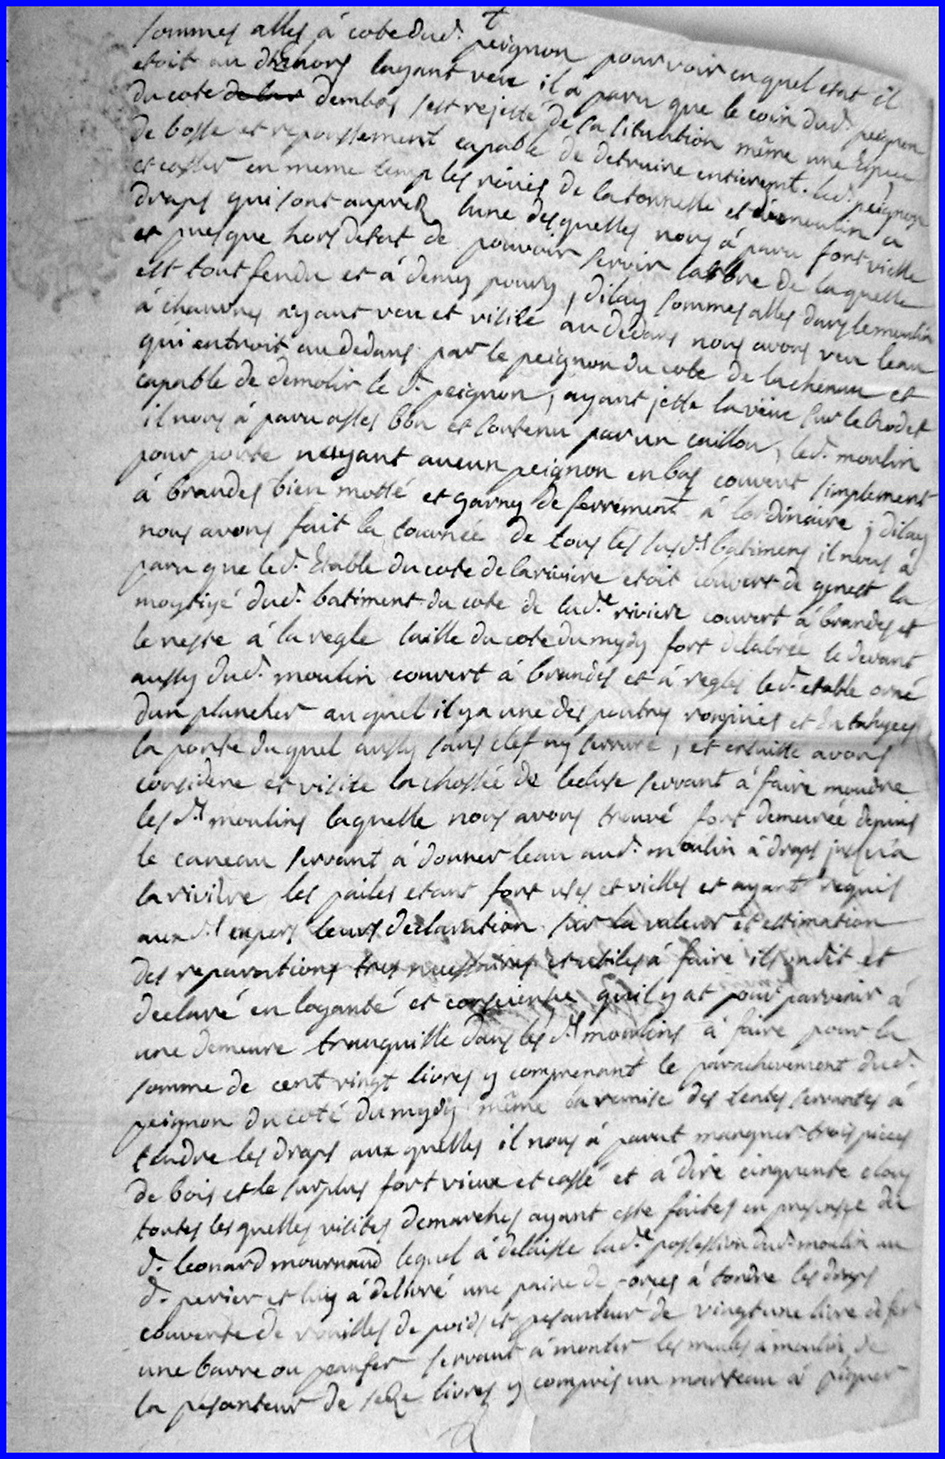 sommes allés à coté dud. peignon pour voir en quel etat il
etoit au dehors layant veu il a paru que le coin dud. peignon
du coté de las dembas sest rejetté de sa situation même une espece
de bosse et repoussement capable de detruire entierem.t led. peignon
et casser en meme temp les roües de la tonnelle et du moulin a
draps qui sont auprez lune desquelles nous à paru fort vielle
et presque hors detat de pouvoir servir larbre de laquelle
est tout fendu et à demy poury, dilay sommes alles dans le moulin
à chauvres ayant veu et visité au dedans nous avons veu leau
qui entroit au dedans par le peignon du coté de lachenau et
capable de demolir le d. peignon, ayant jetté la veüe sur le rodet
il nous à paru asses bon et soutenu par un caillou, led. moulin
pour porte nayant aucun peignon en bas couvert simplement
à brandes bien motté et garny de ferrement à lordinaire, dilay
nous avons fait la tournée de tous les susd.ts batimens il nous à
paru que led. Etable du coté de la riviere etoit couvert de genest la
moytiyé dud. batiment du coté de lad.e riviere couvert à brandes et
le reste à la regle laisle du coté du mydy fort delabrée le devant
aussy dud. moulin couvert à brandes et à regles led. etable orné
dun plancher auquel il y a une des poutres rompües et
la porte duquel aussy sans clef ny serrure, et ensuitte avons
consideré et visité lachossée de lecluse servant à faire moudre
les d.ts moulins laquelle nous avons trouvé fort demeurée depuis
le caneau servant à donner leau aud. moulin à draps jusqu'a
la riviere les pailes etant fort usés et vielles et ayant requis
auxd.ts expers leurs declaration sur la valeur et estimation
des reparations tres necessaires et utiles à faire ils ont dit et
declaré en loyauté et consience quil y at pour parvenir à
une demeure tranquille dans les d.ts moulins à faire pour la
somme de cent vingt livres y comprenant le parachevement dud.
peignon du coté du mydy même la remise des tentes servantes à
tendre les draps aux quelles il nous à parut manquer trois pieces
de bois et le surplus fort vieux et cassé et a dire cinquente clous
toutes lesquelles visites demarches ayant esté faites en presence du
d. leonard mournaud lequel à delaissé lad.e possession dud. moulin au
d. perier et luy à dellivré une paire de forçes à tondre les draps
couverte de rouilles de poids et pesanteur de vingt une livre de fer
une barre ou peaufer servant à monter les meules à moulin de
la pesanteur de seize livres y compris un marteau à piquer